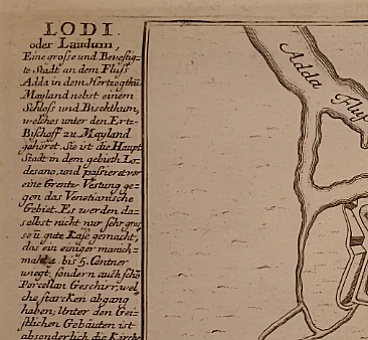 LODI.
oder Laudum,
Eine grosse und Bevestig-
te Stadt an dem Fluss
Adda in dem Hertzogthū
Mayland nebst einem
Schloss und Bischthum,
welches unter den Ertz-
Bischoff zu Mayland
gehöret. Sie ist die Haupt
Stadt in dem gebieth Lo-
desano, und passieret vor
eine Grantz Vestung ge-
gen das Venetianische
Gebiet. Es werden da-
selbst nicht nur sehr gros
se ū gute Käse gemacht,
das ein einiger manich-
mahl bis 5. Centner
wiegt, sondern auch schö
Porcellan Geschirr, wel
che starcken abgang
haben; Unter den Gei-
stlichen Gebäuten ist
absonderlich die Kirche
Adda Fluß